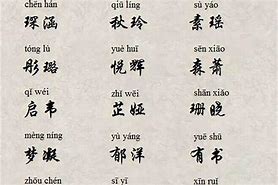 chēn hán qiū líng sù yáo
琛涵 秋玲 素瑶
tóng lù yuè huī sēn xiāo
彤璐 悦辉 森萧
qǐ wéi zhǐ wēi shān xiǎo
启韦 芷娅 珊晓
mèng níng yù yáng yuě shū
梦凝 郁洋 有书
zhōu chén sī yī xīn ruǐ